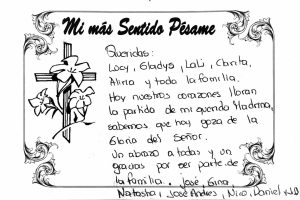 Mi más Sentido Pésame
Queridas:
Lucy, Gladys, Lali, Charita,
Alina y toda la familia.
Hoy nuestros corazones lloran
la partida de mi querida Madrina,
sabemos que hoy goza de la
Gloria del Señor.
Un abrazo a todas y un
gracias por ser parte de
la familia. José, Gina,
Natasha, José Andres, Nico, Daniel